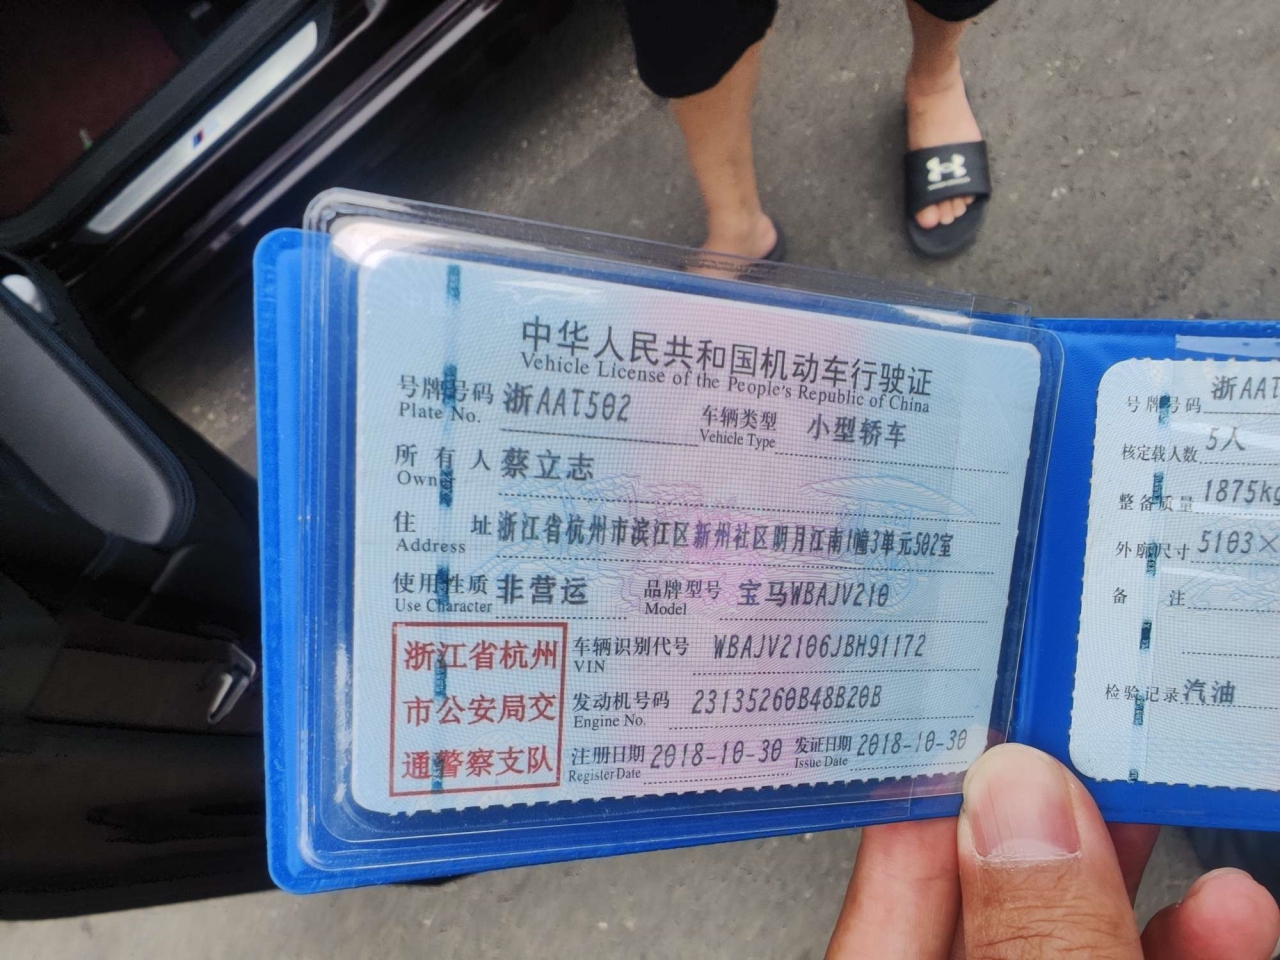 中华人民共和国机动车行驶证
Vehicle License of the People's Republic of China
号牌号码 浙AAT502 车辆类型 小型轿车
Plate No. Vehicle Type
所有人 蔡立志
Owner
住址 浙江省杭州市滨江区新州社区阴月江南1幢3单元502室
Address
使用性质 非营运 品牌型号 宝马WBAJV210
Use Character Model
浙江省杭州
市公安局交
通警察支队
车辆识别代号 WBAJV2106JBH91172
VIN
发动机号码 23135260B48B20B
Engine No.
注册日期 2018-10-30 发证日期 2018-10-30
Register Date Issue Date
号牌号码 浙AAT
核定载人数 5人
整备质量 1875kg
外廓尺寸 5103×
备注
检验记录 汽油